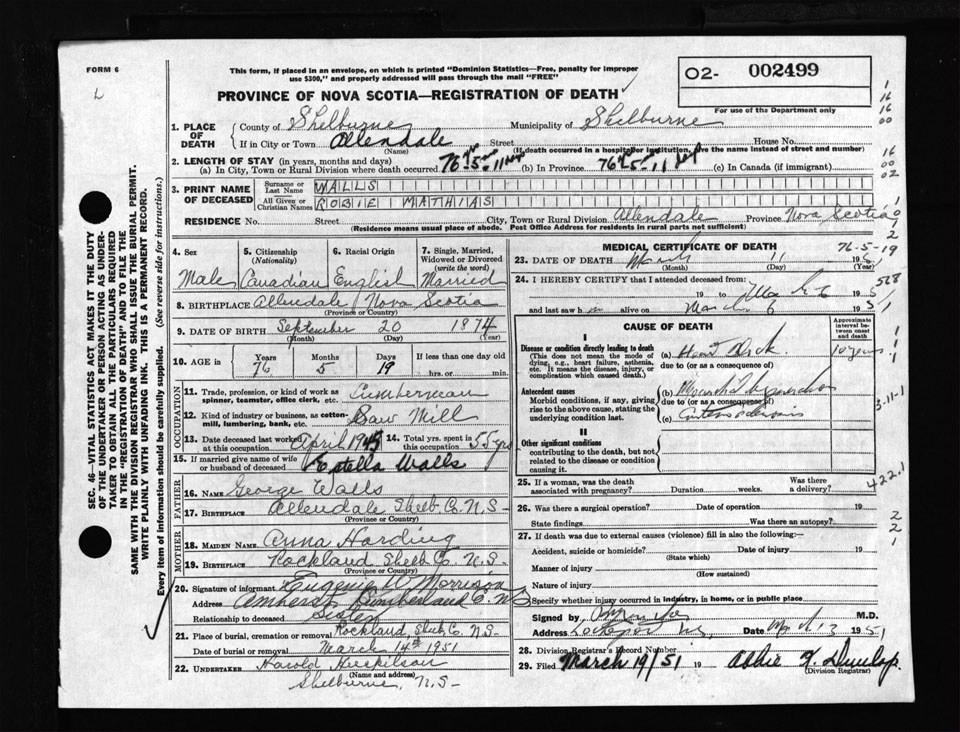 FORM 6
This form, if placed in an envelope, on which is printed "Dominion Statistics—Free, penalty for improper
use $300," and properly addressed will pass through the mail "FREE"
PROVINCE OF NOVA SCOTIA—REGISTRATION OF DEATH
O2- 002499
For use of the Department only
1. PLACE OF DEATH
County of Shelburne Municipality of Shelburne
If in City or Town Allendale Street House No.
(Name) (If death occurred in a hospital or institution, give the name instead of street and number)
2. LENGTH OF STAY (in years, months and days)
(a) In City, Town or Rural Division where death occurred 76 yrs 5 mos 11 days (b) In Province 76 5 11 (c) In Canada (if immigrant)
3. PRINT NAME OF DECEASED
Surname or Last Name WALLS
All Given or Christian Names ROBIE MATHIAS
RESIDENCE No. Street City, Town or Rural Division Allendale Province Nova Scotia
(Residence means usual place of abode. Post Office Address for residents in rural parts not sufficient)
4. Sex
Male
5. Citizenship (Nationality)
Canadian
6. Racial Origin
English
7. Single, Married, Widowed or Divorced (write the word)
Married
8. BIRTHPLACE Allendale Nova Scotia
(Province or Country)
9. DATE OF BIRTH September 20 1874
(Month) (Day) (Year)
10. AGE in Years Months Days If less than one day old
76 5 19 hrs. or min.
OCCUPATION
11. Trade, profession, or kind of work as spinner, teamster, office clerk, etc. Lumberman
12. Kind of industry or business, as cotton-mill, lumbering, bank, etc. Saw Mill
13. Date deceased last worked at this occupation April 1945 14. Total yrs. spent in this occupation 55 yrs
15. If married give name of wife or husband of deceased Estella Walls
FATHER
16. NAME George Walls
17. BIRTHPLACE Allendale Shelb Co. N.S-
(Province or Country)
MOTHER
18. MAIDEN NAME Anna Harding
19. BIRTHPLACE Rockland Shelb Co. N.S-
(Province or Country)
20. Signature of informant Eugenie W Morrison
Address Amherst Cumberland Co. N.S
Relationship to deceased Sister
21. Place of burial, cremation or removal Rockland, Shelb, Co. N.S-
Date of burial or removal March 14th 1951
22. UNDERTAKER Harold
(Name and address)
Shelburne, N.S-
MEDICAL CERTIFICATE OF DEATH
76-5-19
23. DATE OF DEATH March 11 19
(Month) (Day) (Year)
24. I HEREBY CERTIFY that I attended deceased from
568
19 to 19
and last saw h m alive on March 6 19 51
CAUSE OF DEATH
Approximate interval between onset and death
I
Disease or condition directly leading to death
(This does not mean the mode of dying, e.g., heart failure, asthenia, etc. It means the disease, injury, or complication which caused death.)
(a) 10 years
due to (or as a consequence of)
Antecedent causes
Morbid conditions, if any, giving rise to the above cause, stating the underlying condition last.
(b)
due to (or as a consequence of)
(c)
II
Other significant conditions
contributing to the death, but not related to the disease or condition causing it.
25. If a woman, was the death associated with pregnancy? Duration weeks. Was there a delivery?
26. Was there a surgical operation? Date of operation 19
State findings Was there an autopsy?
27. If death was due to external causes (violence) fill in also the following:—
Accident, suicide or homicide? Date of injury 19
(State which)
Manner of injury
(How sustained)
Nature of injury
Specify whether injury occurred in industry, in home, or in public place
Signed by M.D.
Address Lockeport N.S. Date March 13 1951
28. Division Registrar's Record Number
29. Filed March 19/51 19 Abbie F. Dunlop
(Division Registrar)
SEC. 46—VITAL STATISTICS ACT MAKES IT THE DUTY
OF THE UNDERTAKER OR PERSON ACTING AS UNDERTAKER
TO OBTAIN ALL THE PARTICULARS REQUIRED
IN THE "REGISTRATION OF DEATH" AND TO FILE THE
SAME WITH THE DIVISION REGISTRAR WHO SHALL ISSUE THE BURIAL PERMIT.
WRITE PLAINLY WITH UNFADING INK. THIS IS A PERMANENT RECORD.
Every item of information should be carefully supplied. (See reverse side for instructions.)
3-11-1
422.1